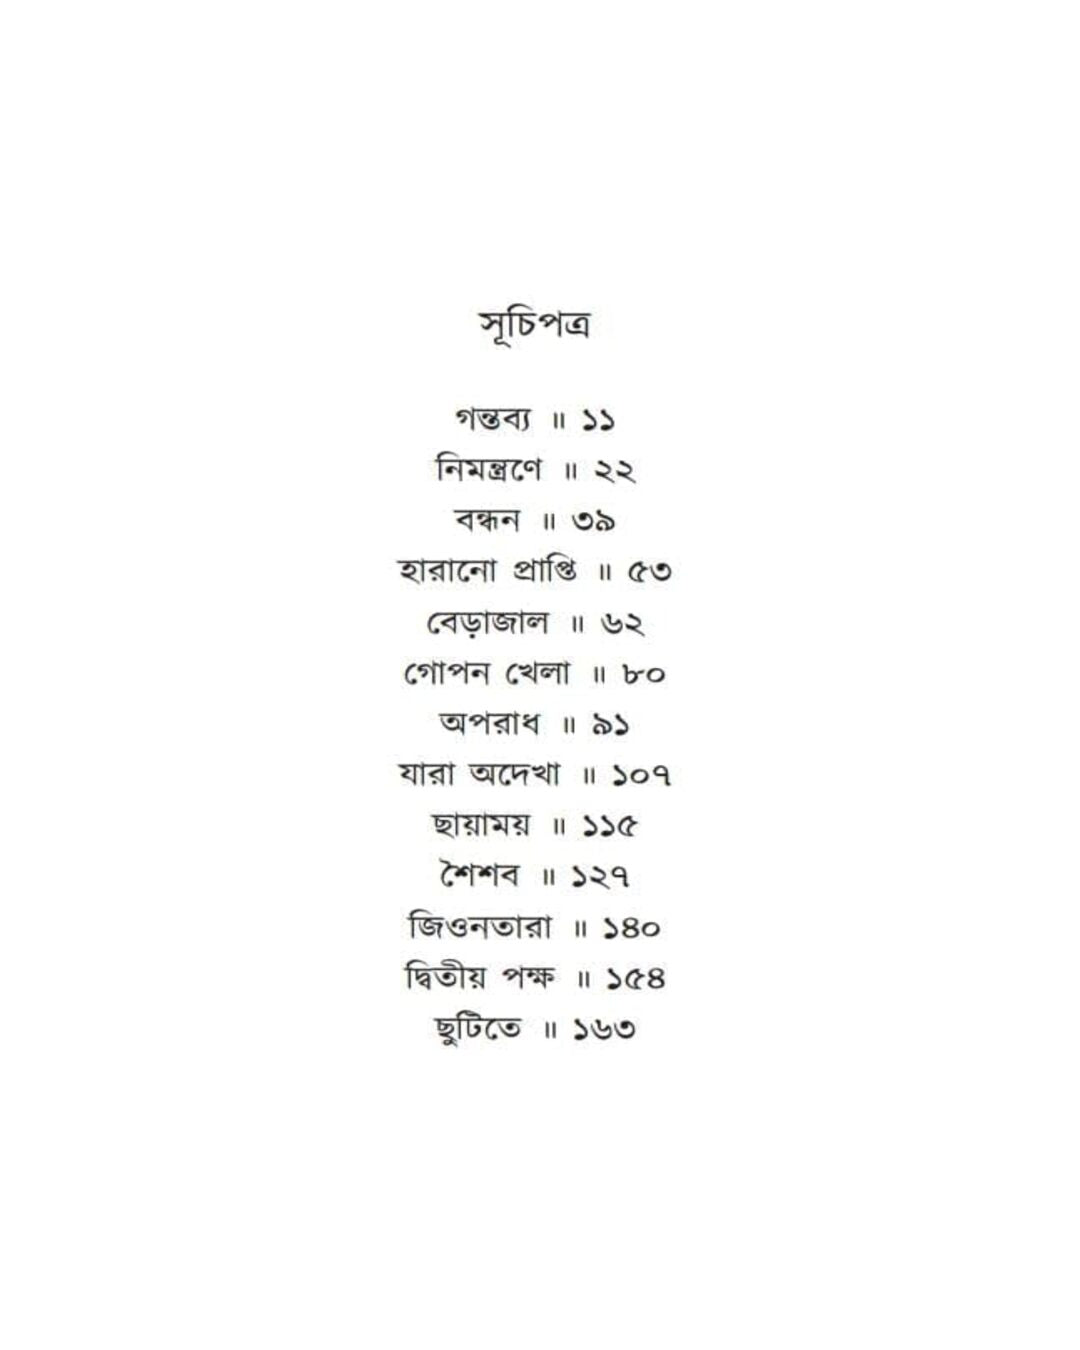 সূচিপত্র
গন্তব্য ॥ ১১
নিমন্ত্রণে ॥ ২২
বন্ধন ॥ ৩৯
হারানো প্রাপ্তি ॥ ৫৩
বেড়াজাল ॥ ৬২
গোপন খেলা ॥ ৮০
অপরাধ ॥ ৯১
যারা অদেখা ॥ ১০৭
ছায়াময় ॥ ১১৫
শৈশব ॥ ১২৭
জিওনতারা ॥ ১৪০
দ্বিতীয় পক্ষ ॥ ১৫৪
ছুটিতে ॥ ১৬৩